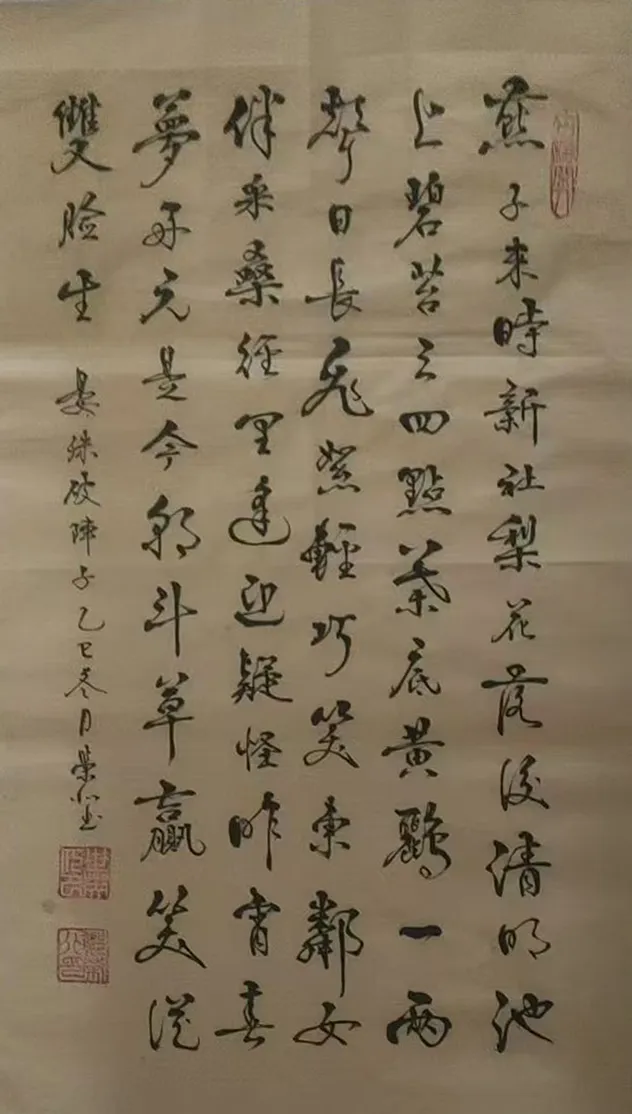 燕子来時新社梨花落後清明池
上碧苔三四點葉底黄鸝一兩
聲日長飛絮輕巧笑東鄰女
伴采桑徑里逢迎疑怪昨宵春
夢好元是今朝斗草贏笑從
雙脸生 晏殊破陣子乙巳冬月